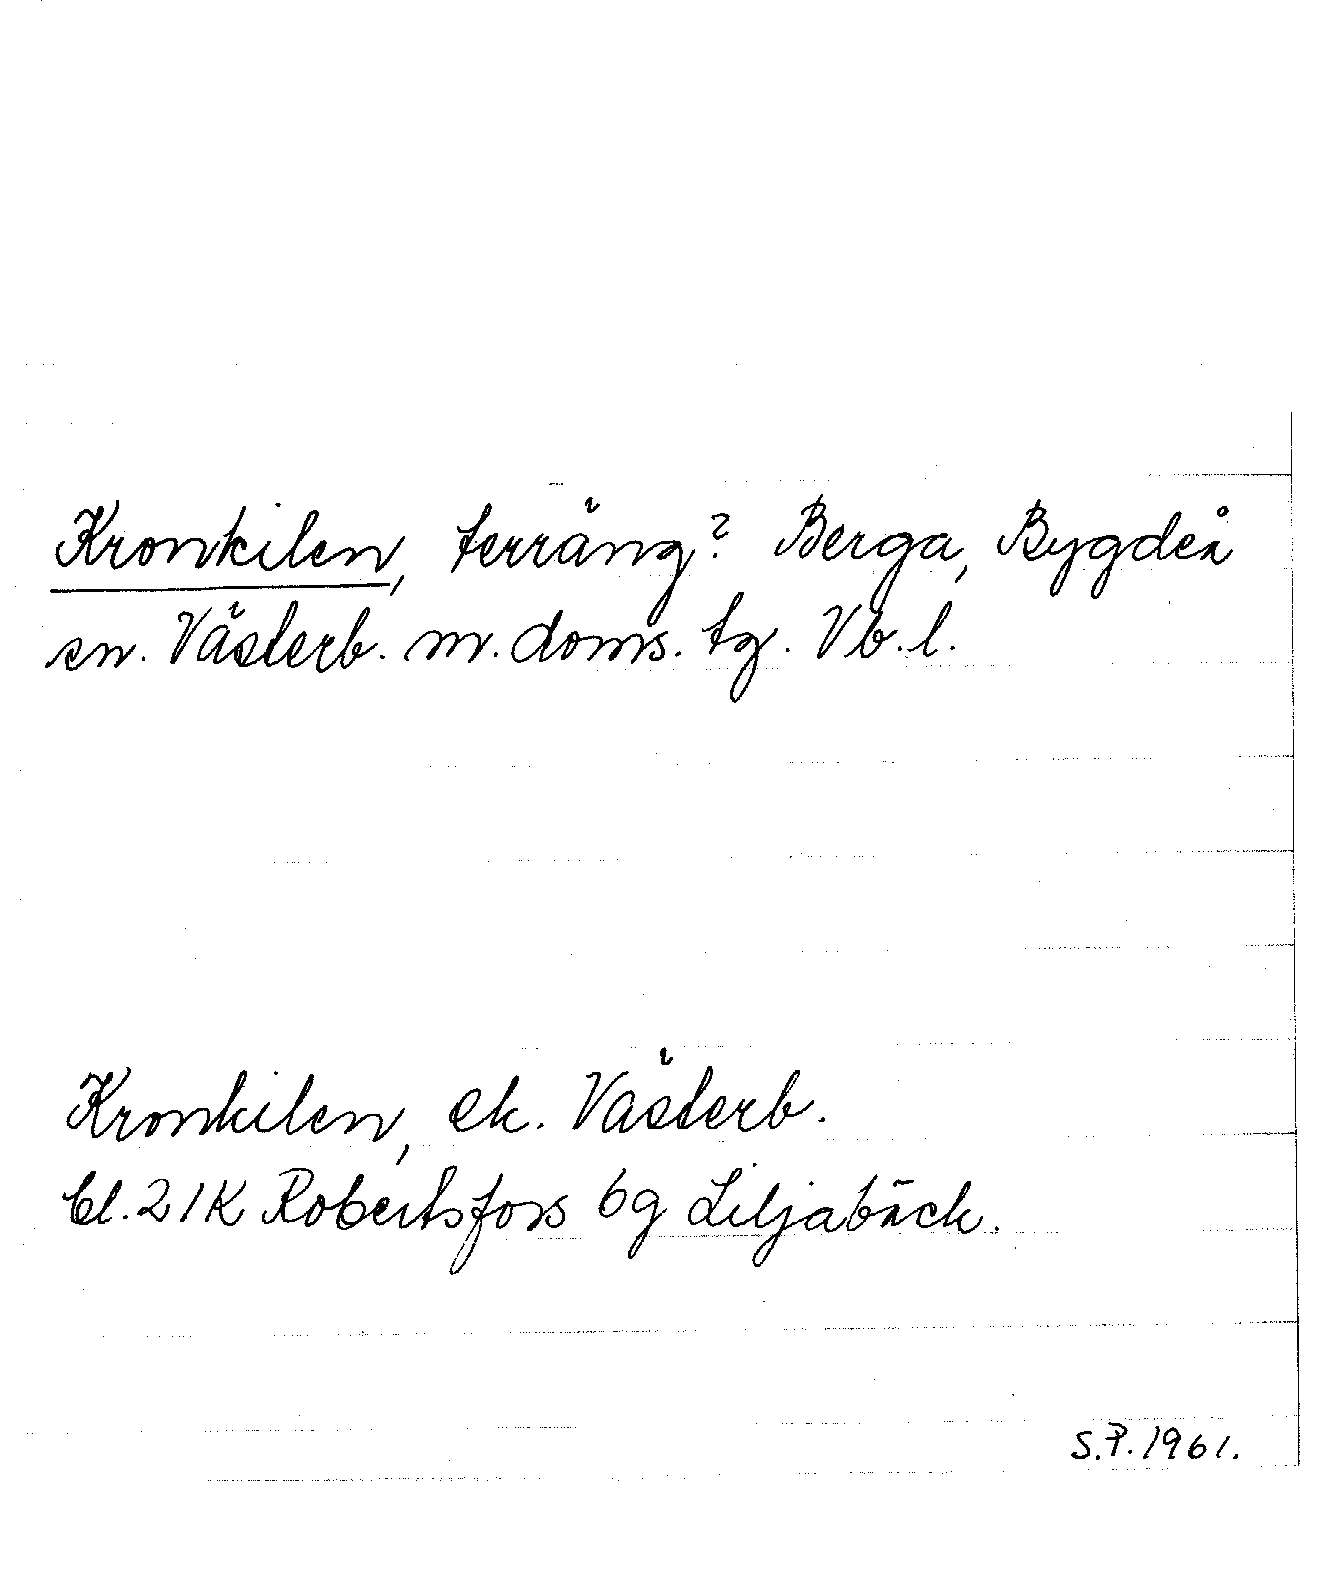 Kronkilen, terräng? Berga, Bygdeå
sn. Västerb. m. doms. tg. Vb. l.
Kronkilen, ek. Västerb.
bl. 21K Robertsfors 6g Liljabäck.
S.P. 1961.